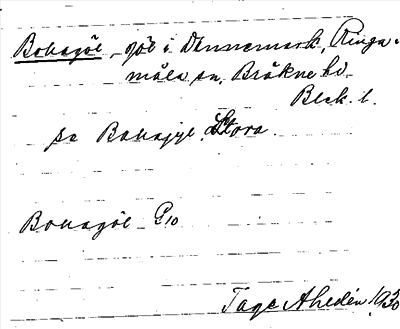 Bokagöl, göl i Dannemark, Ringa-
måla sn. Bräkne hd.
Blek. l.
se Bokagyl, Stora.
Bokagöl G10
Tage Ahldén 1930